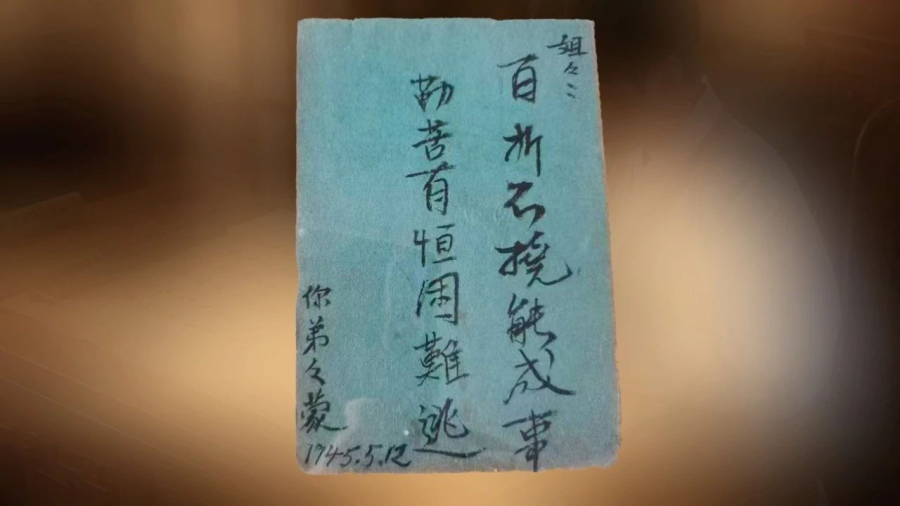 姐々:
百折不撓能成事
勤苦有恒困難逃
你弟々蒙
1945.5.12